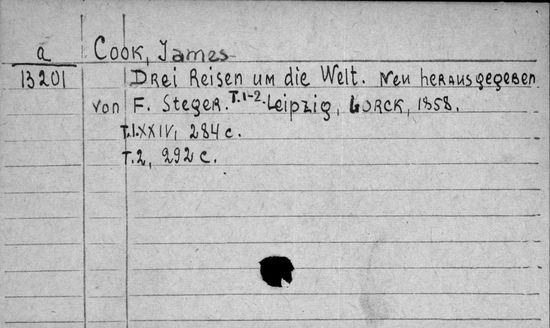 a
13201
Cook, James
Drei Reisen um die Welt. Neu herausgegeben
von F. Steger. T.1-2. Leipzig, Lorck, 1858.
T.1. XXIV, 284 c.
T.2, 292 c.